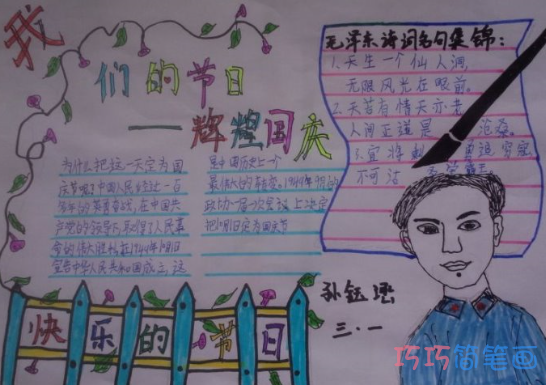 我们的节日
—辉煌国庆
为什么把这一天定为国
庆节呢？中国人民经过一百
多年的英勇奋战，在中国共
产党的领导下，取得了人民革
命的伟大胜利，在1949年10月1日
宣告中华人民共和国成立，这
是中国历史上一个
最伟大的转变。1949年9月的
政协一届一次会议上决定
把10月1日定为国庆节
毛泽东诗词名句集锦：
1.天生一个仙人洞，
无限风光在眼前。
2.天若有情天亦老，
人间正道是 沧桑。
3.宜将剩 勇追穷寇，
不可沽
孙钰
三·一
快乐的节日
巧巧简笔画